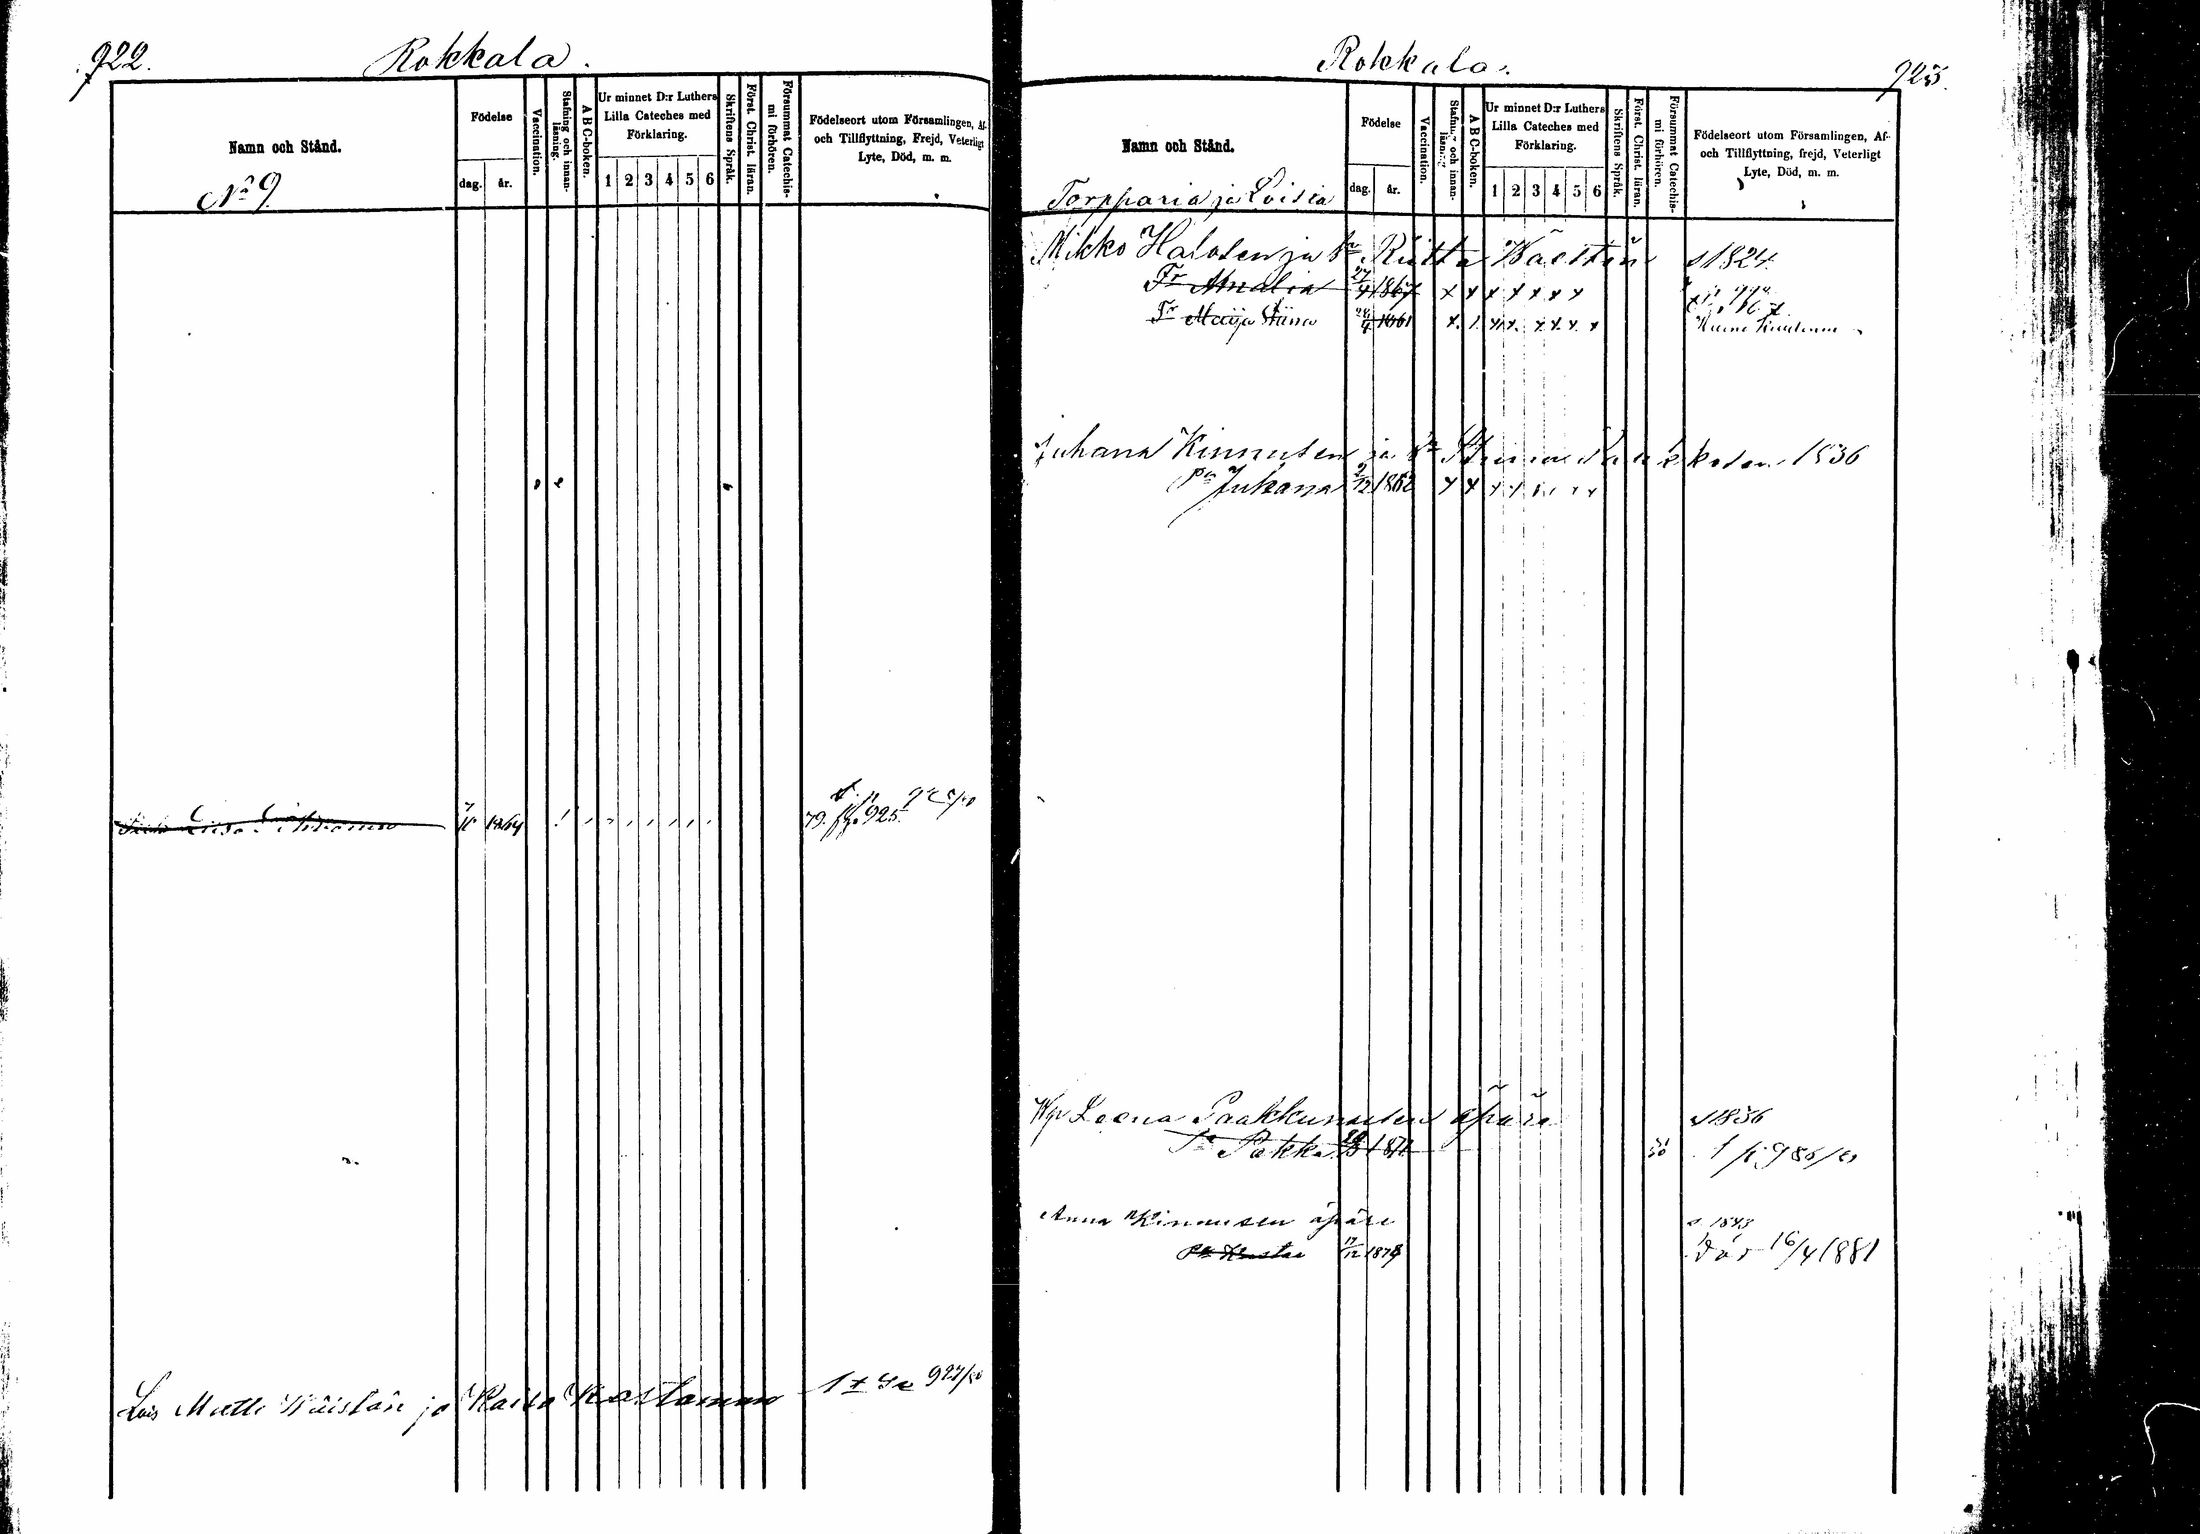 922.
Rokkala.
Namn och Stånd.
Födelse
dag.
år.
Vaccination.
Stafning och innan-läsning.
ABC-boken.
Ur minnet D:r Luthers
Lilla Cateches med
Förklaring.
1 2 3 4 5 6
Skriftens Språk.
Först. Christ. läran.
Försummat Catechis-mi förhören.
Födelseort utom Församlingen, Af-
och Tillflyttning, Frejd, Veterligt
Lyte, Död, m. m.
No 9
Liisa 1864
79. 925.
Lois Matti Wäistän ja Kaisa 927/80
Rokkala.
925.
Namn och Stånd.
Födelse
dag.
år.
Vaccination.
Stafning och innan-läsning.
ABC-boken.
Ur minnet D:r Luthers
Lilla Cateches med
Förklaring.
1 2 3 4 5 6
Skriftens Språk.
Först. Christ. läran.
Försummat Catechis-mi förhören.
Födelseort utom Församlingen, Af-
och Tillflyttning, frejd, Veterligt
Lyte, Död, m. m.
Torpparia ja Loisia
Mikko Halosen ja Riitta s 1824
Tr Amalia 27/4 1867 x x x x x x x
Tr Maija Stiina 1861
Juhana Kinnusen ja Stiina 1836
Pa Juhana 2/12 1862
Leena Paakkunaisen äpärä s 1836
Pa Pekka
Anna Kinnusen äpäre s. 1843
Pa Kustaa 17/12 1878 Död 16/4 1881